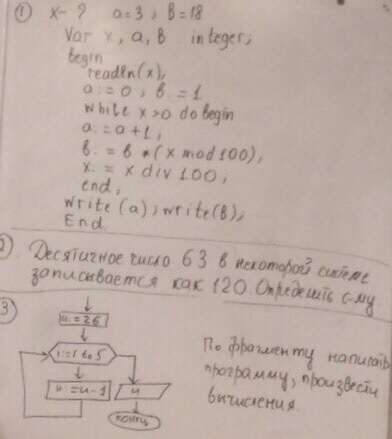 1 x - ? a=3; b=18
Var x, a, b integer;
begin
readln(x),
a:=0; b:=1
while x>0 do begin
a:=a+1,
b:=b*(x mod 100),
x:=x div 100;
end,
write(a); write(b);
End.
2 Десятичное число 63 в некоторой системе
записывается как 120 Определить с-му
3
u:=26
i:=1 to 5
u:=u-1 u
конец
По фрагменту написать
программу, произвести
вычисления.